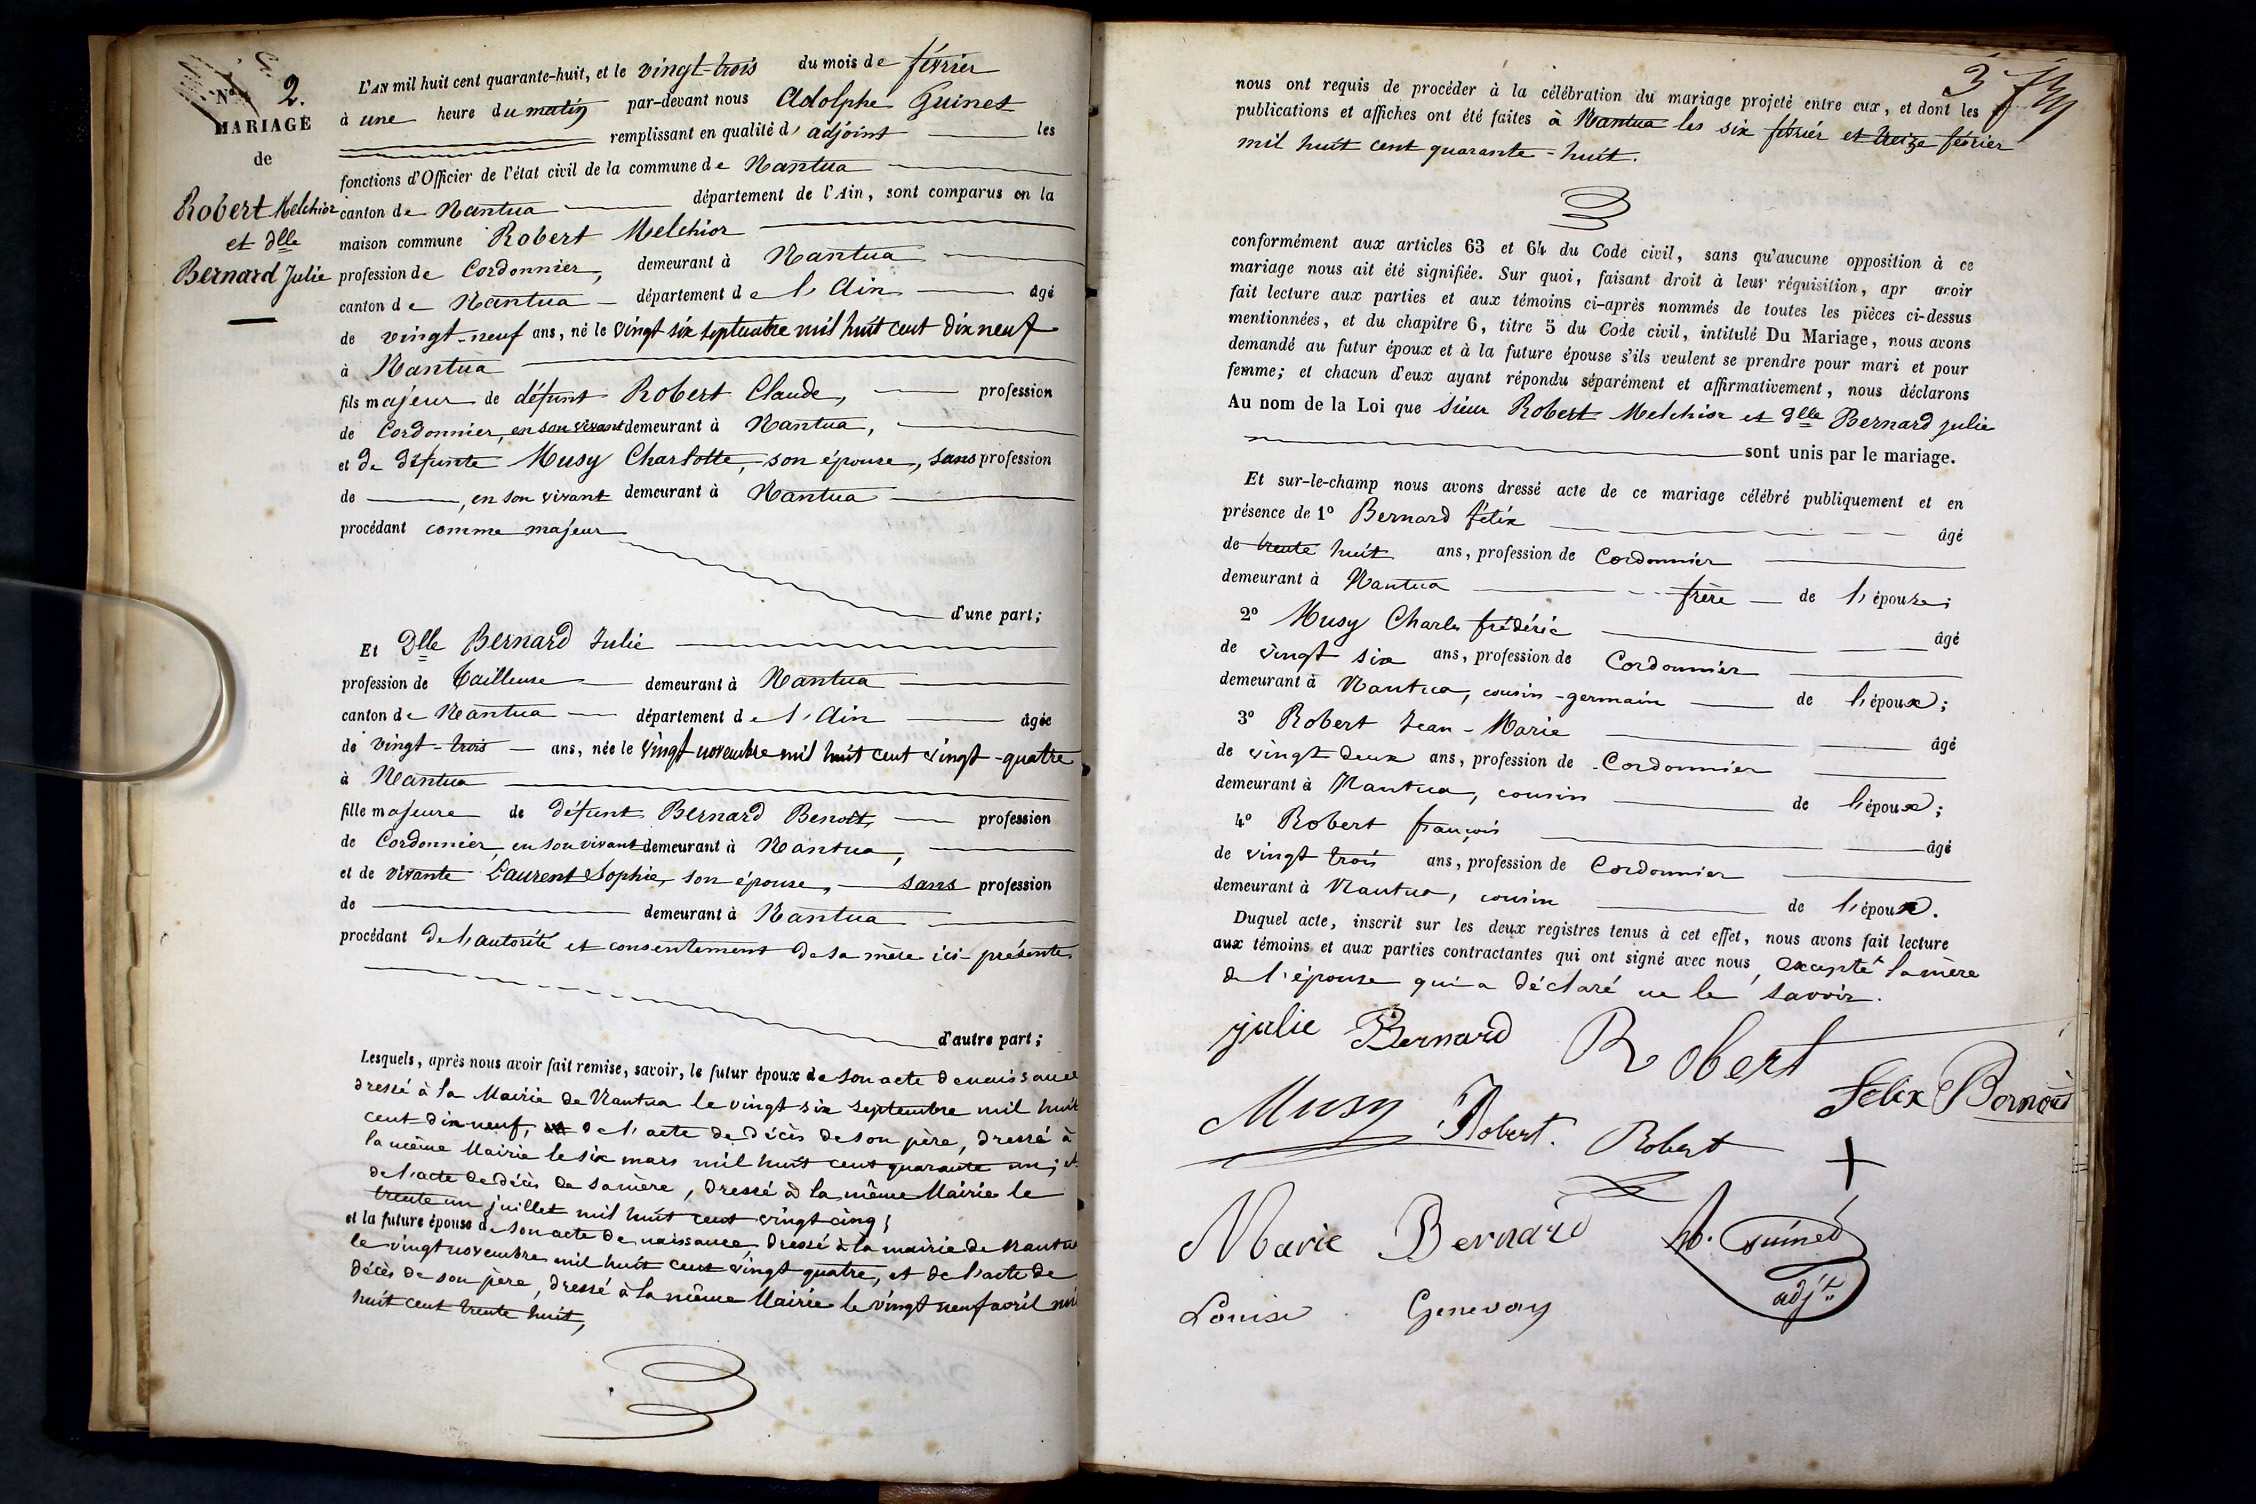 N° 2.
MARIAGE
de
Robert Melchior
et dlle
Bernard Julie
L'AN mil huit cent quarante-huit, et le vingt-trois du mois de février
à une heure du matin par-devant nous Adolphe Guinet
remplissant en qualité d'adjoint les
fonctions d'Officier de l'état civil de la commune de Nantua
canton de Nantua département de l'Ain, sont comparus en la
maison commune Robert Melchior
profession de Cordonnier, demeurant à Nantua
canton de Nantua département de l'Ain âgé
de vingt-neuf ans, né le vingt six septembre mil huit cent dix neuf
à Nantua
fils majeur de défunt Robert Claude, profession
de Cordonnier, en son vivant demeurant à Nantua,
et de défunte Musy Charlotte, son épouse, sans profession
de , en son vivant demeurant à Nantua
procédant comme majeur
d'une part;
Et Dlle Bernard Julie
profession de Tailleuse demeurant à Nantua
canton de Nantua département de l'Ain âgée
de vingt-trois ans, née le vingt novembre mil huit cent vingt-quatre
à Nantua
fille majeure de défunt Bernard Benoît, profession
de Cordonnier, en son vivant demeurant à Nantua,
et de vivante Laurent Sophie, son épouse, sans profession
de demeurant à Nantua
procédant de l'autorité et consentement de sa mère ici-présente
d'autre part;
Lesquels, après nous avoir fait remise, savoir, le futur époux de son acte de naissance
dressé à la Mairie de Nantua le vingt six septembre mil huit
cent dix neuf, de l'acte de décès de son père, dressé à
la même Mairie le six mars mil huit cent quarante un; et
de l'acte de décès de sa mère, dressé à la même Mairie le
trente un juillet mil huit cent vingt cinq;
et la future épouse de son acte de naissance, dressé à la mairie de Nantua
le vingt novembre mil huit cent vingt quatre, et de l'acte de
décès de son père, dressé à la même Mairie le vingt neuf avril mil
huit cent trente huit,
3
nous ont requis de procéder à la célébration du mariage projeté entre eux, et dont les
publications et affiches ont été faites à Nantua les six février et treize février
mil huit cent quarante-huit.
conformément aux articles 63 et 64 du Code civil, sans qu'aucune opposition à ce
mariage nous ait été signifiée. Sur quoi, faisant droit à leur réquisition, apr avoir
fait lecture aux parties et aux témoins ci-après nommés de toutes les pièces ci-dessus
mentionnées, et du chapitre 6, titre 5 du Code civil, intitulé Du Mariage, nous avons
demandé au futur époux et à la future épouse s'ils veulent se prendre pour mari et pour
femme; et chacun d'eux ayant répondu séparément et affirmativement, nous déclarons
Au nom de la Loi que sieur Robert Melchior et dlle Bernard Julie
sont unis par le mariage.
Et sur-le-champ nous avons dressé acte de ce mariage célébré publiquement et en
présence de 1° Bernard félix âgé
de trente huit ans, profession de Cordonnier
demeurant à Nantua frère de l'épouse;
2° Musy Charles frédéric âgé
de vingt six ans, profession de Cordonnier
demeurant à Nantua, cousin-germain de l'époux;
3° Robert Jean-Marie âgé
de vingt deux ans, profession de Cordonnier
demeurant à Nantua, cousin de l'époux;
4° Robert françois âgé
de vingt trois ans, profession de Cordonnier
demeurant à Nantua, cousin de l'époux.
Duquel acte, inscrit sur les deux registres tenus à cet effet, nous avons fait lecture
aux témoins et aux parties contractantes qui ont signé avec nous, excepté la mère
de l'épouse qui a déclaré ne le savoir.
julie Bernard Robert
Musy Robert. Robert Félix Bernard
Marie Bernard Ad. Guinet
adjt
Louise Genevay